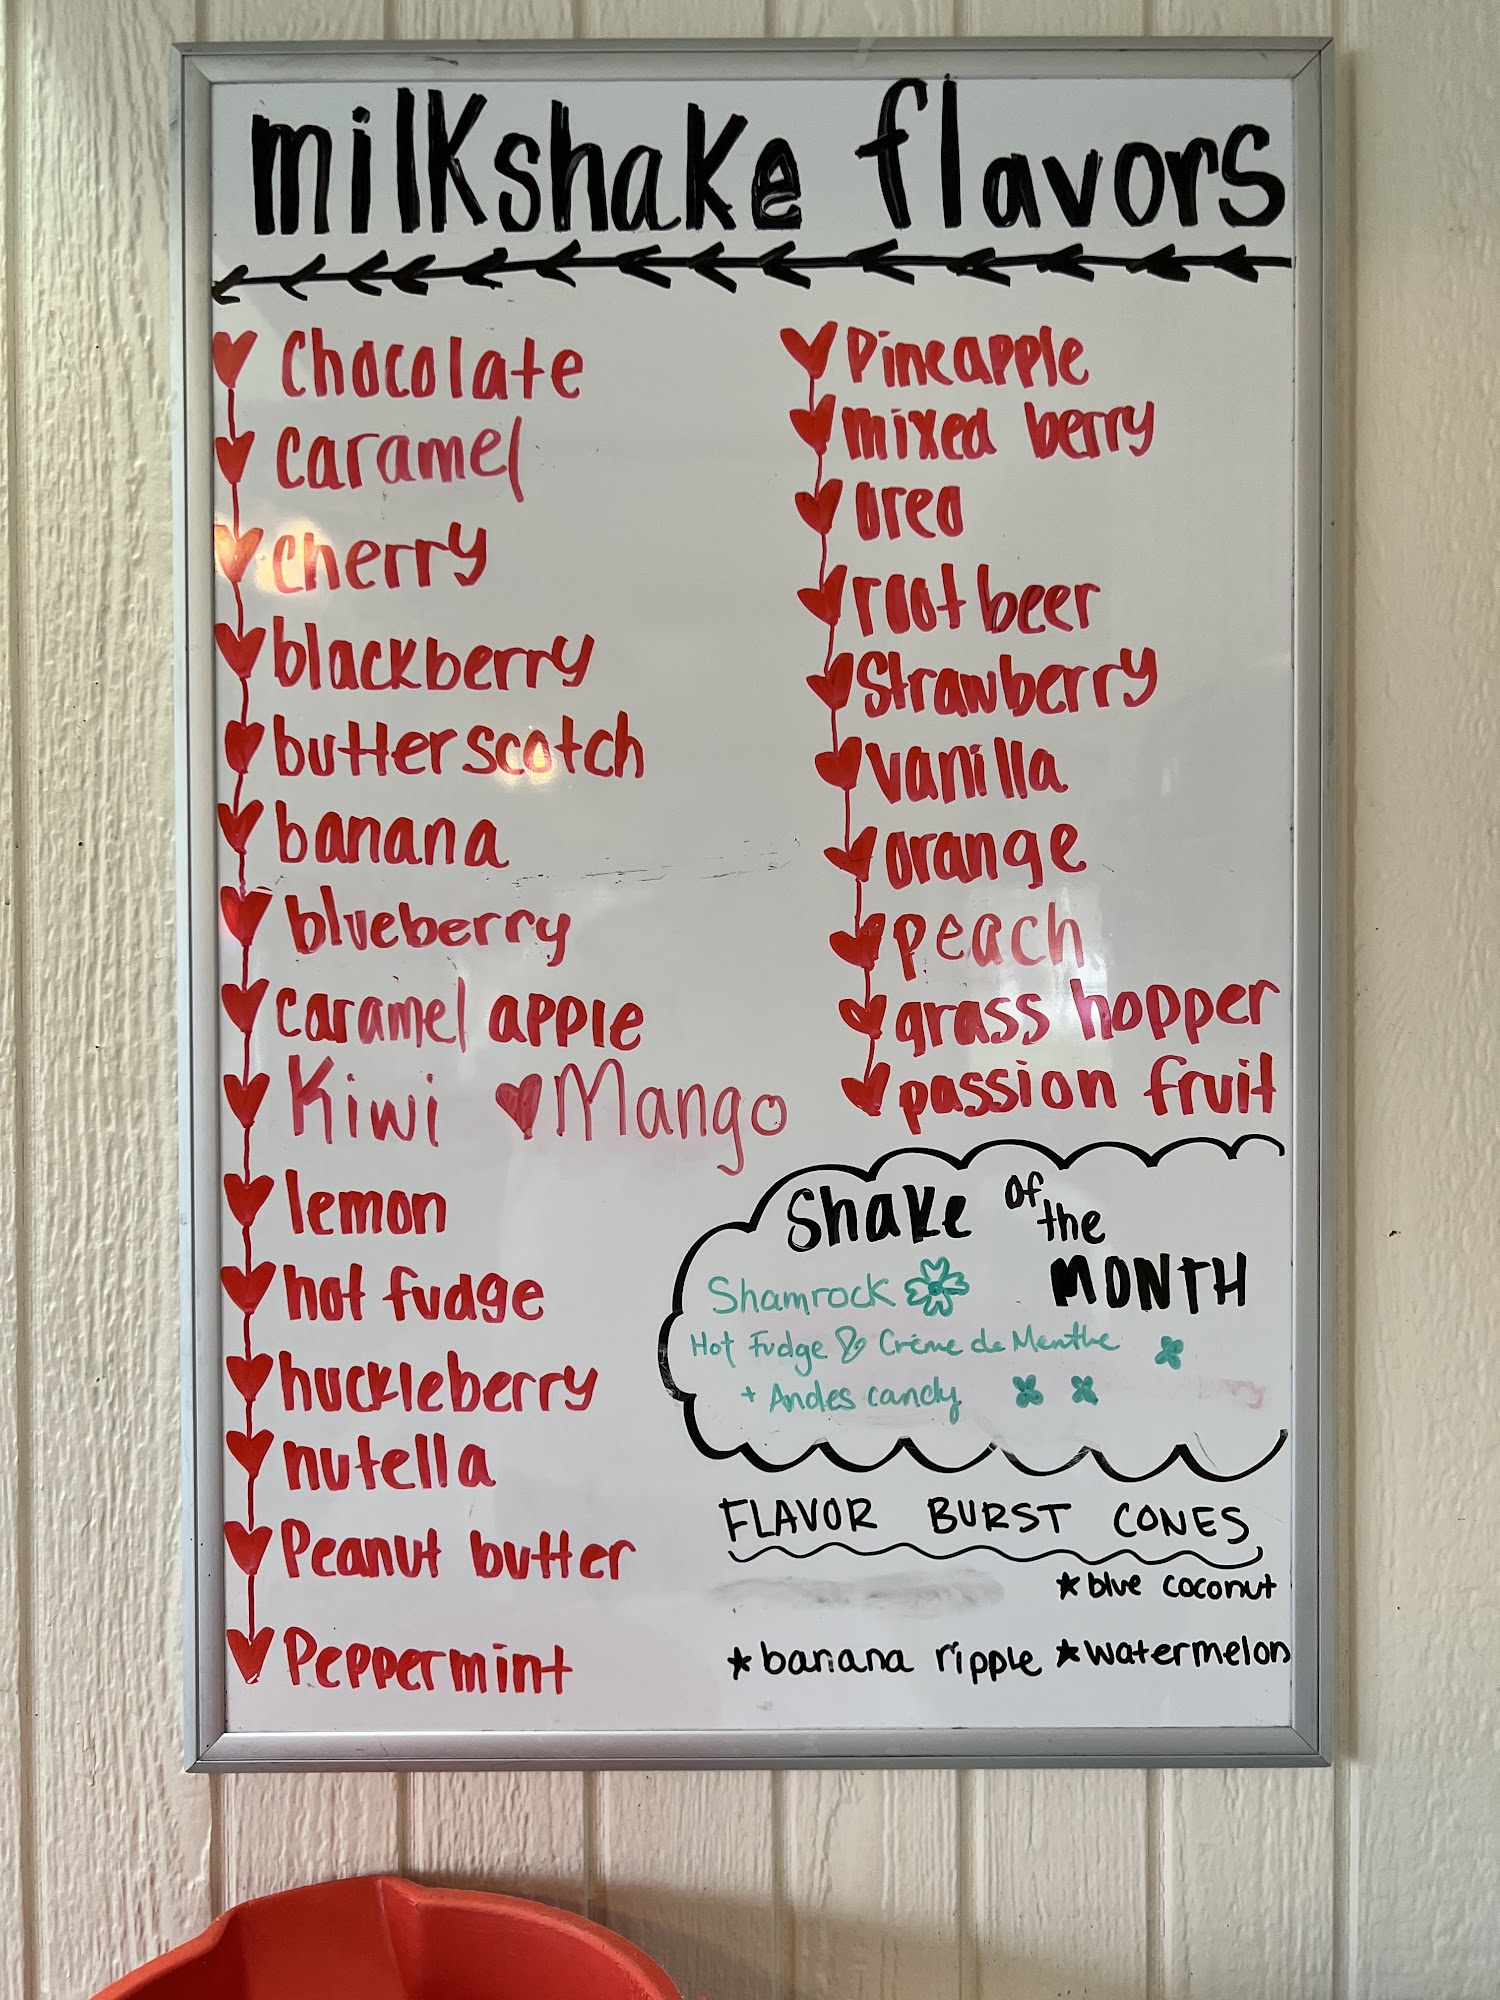 milkshake flavors
Chocolate
caramel
cherry
blackberry
butterscotch
banana
blueberry
caramel apple
Kiwi Mango
lemon
hot fudge
huckleberry
nutella
Peanut butter
Peppermint
Pineapple
mixed berry
oreo
root beer
Strawberry
vanilla
orange
peach
grass hopper
passion fruit
Shake of the
MONTH
Shamrock
Hot Fudge & Crème de Menthe
+ Andes candy
FLAVOR BURST CONES
*blue coconut
*banana ripple *watermelon